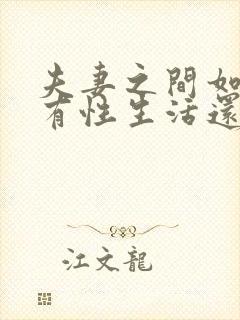 夫妻之間如
有性生活還
江文龍